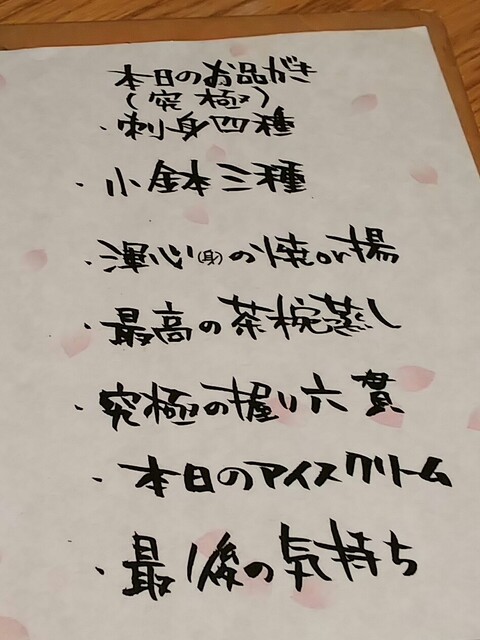 本日のお品がき
(究極)
・刺身四種
・小鉢三種
・渾心の焼or揚
・最高の茶椀蒸し
・究極の握り六貫
・本日のアイスクリーム
・最後の気持ち